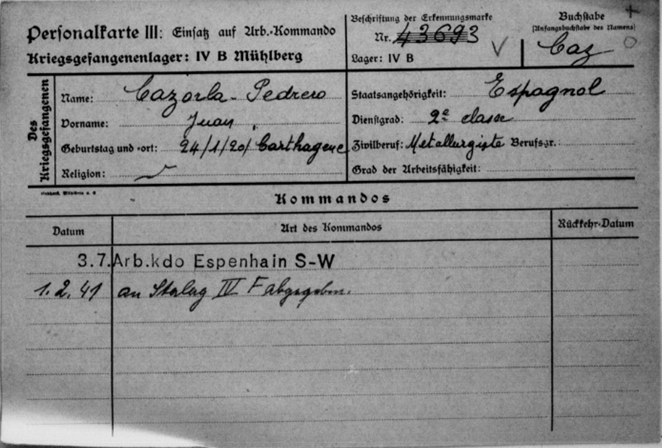 Personalkarte III: Einsatz auf Arb.-Kommando
Kriegsgefangenenlager: IV B Mühlberg
Beschriftung der Erkennungsmarke
Nr. 43693
Lager: IV B
Buchstabe
(Anfangsbuchstabe des Namens)
Caz
Des Kriegsgefangenen
Name: Cazorla-Pedrero
Vorname: Juan
Geburtstag und -ort: 24/1/20/ Carthagene
Religion:
Staatsangehörigkeit: Espagnol
Dienstgrad: 2e classe
Zivilberuf: Metallurgiste Berufsgr.:
Grad der Arbeitsfähigkeit:
Kommandos
Datum Art des Kommandos Rückkehr-Datum
3.7. Arb.kdo Espenhain S-W
1.2.41 an Stalag IV F abgegeben.